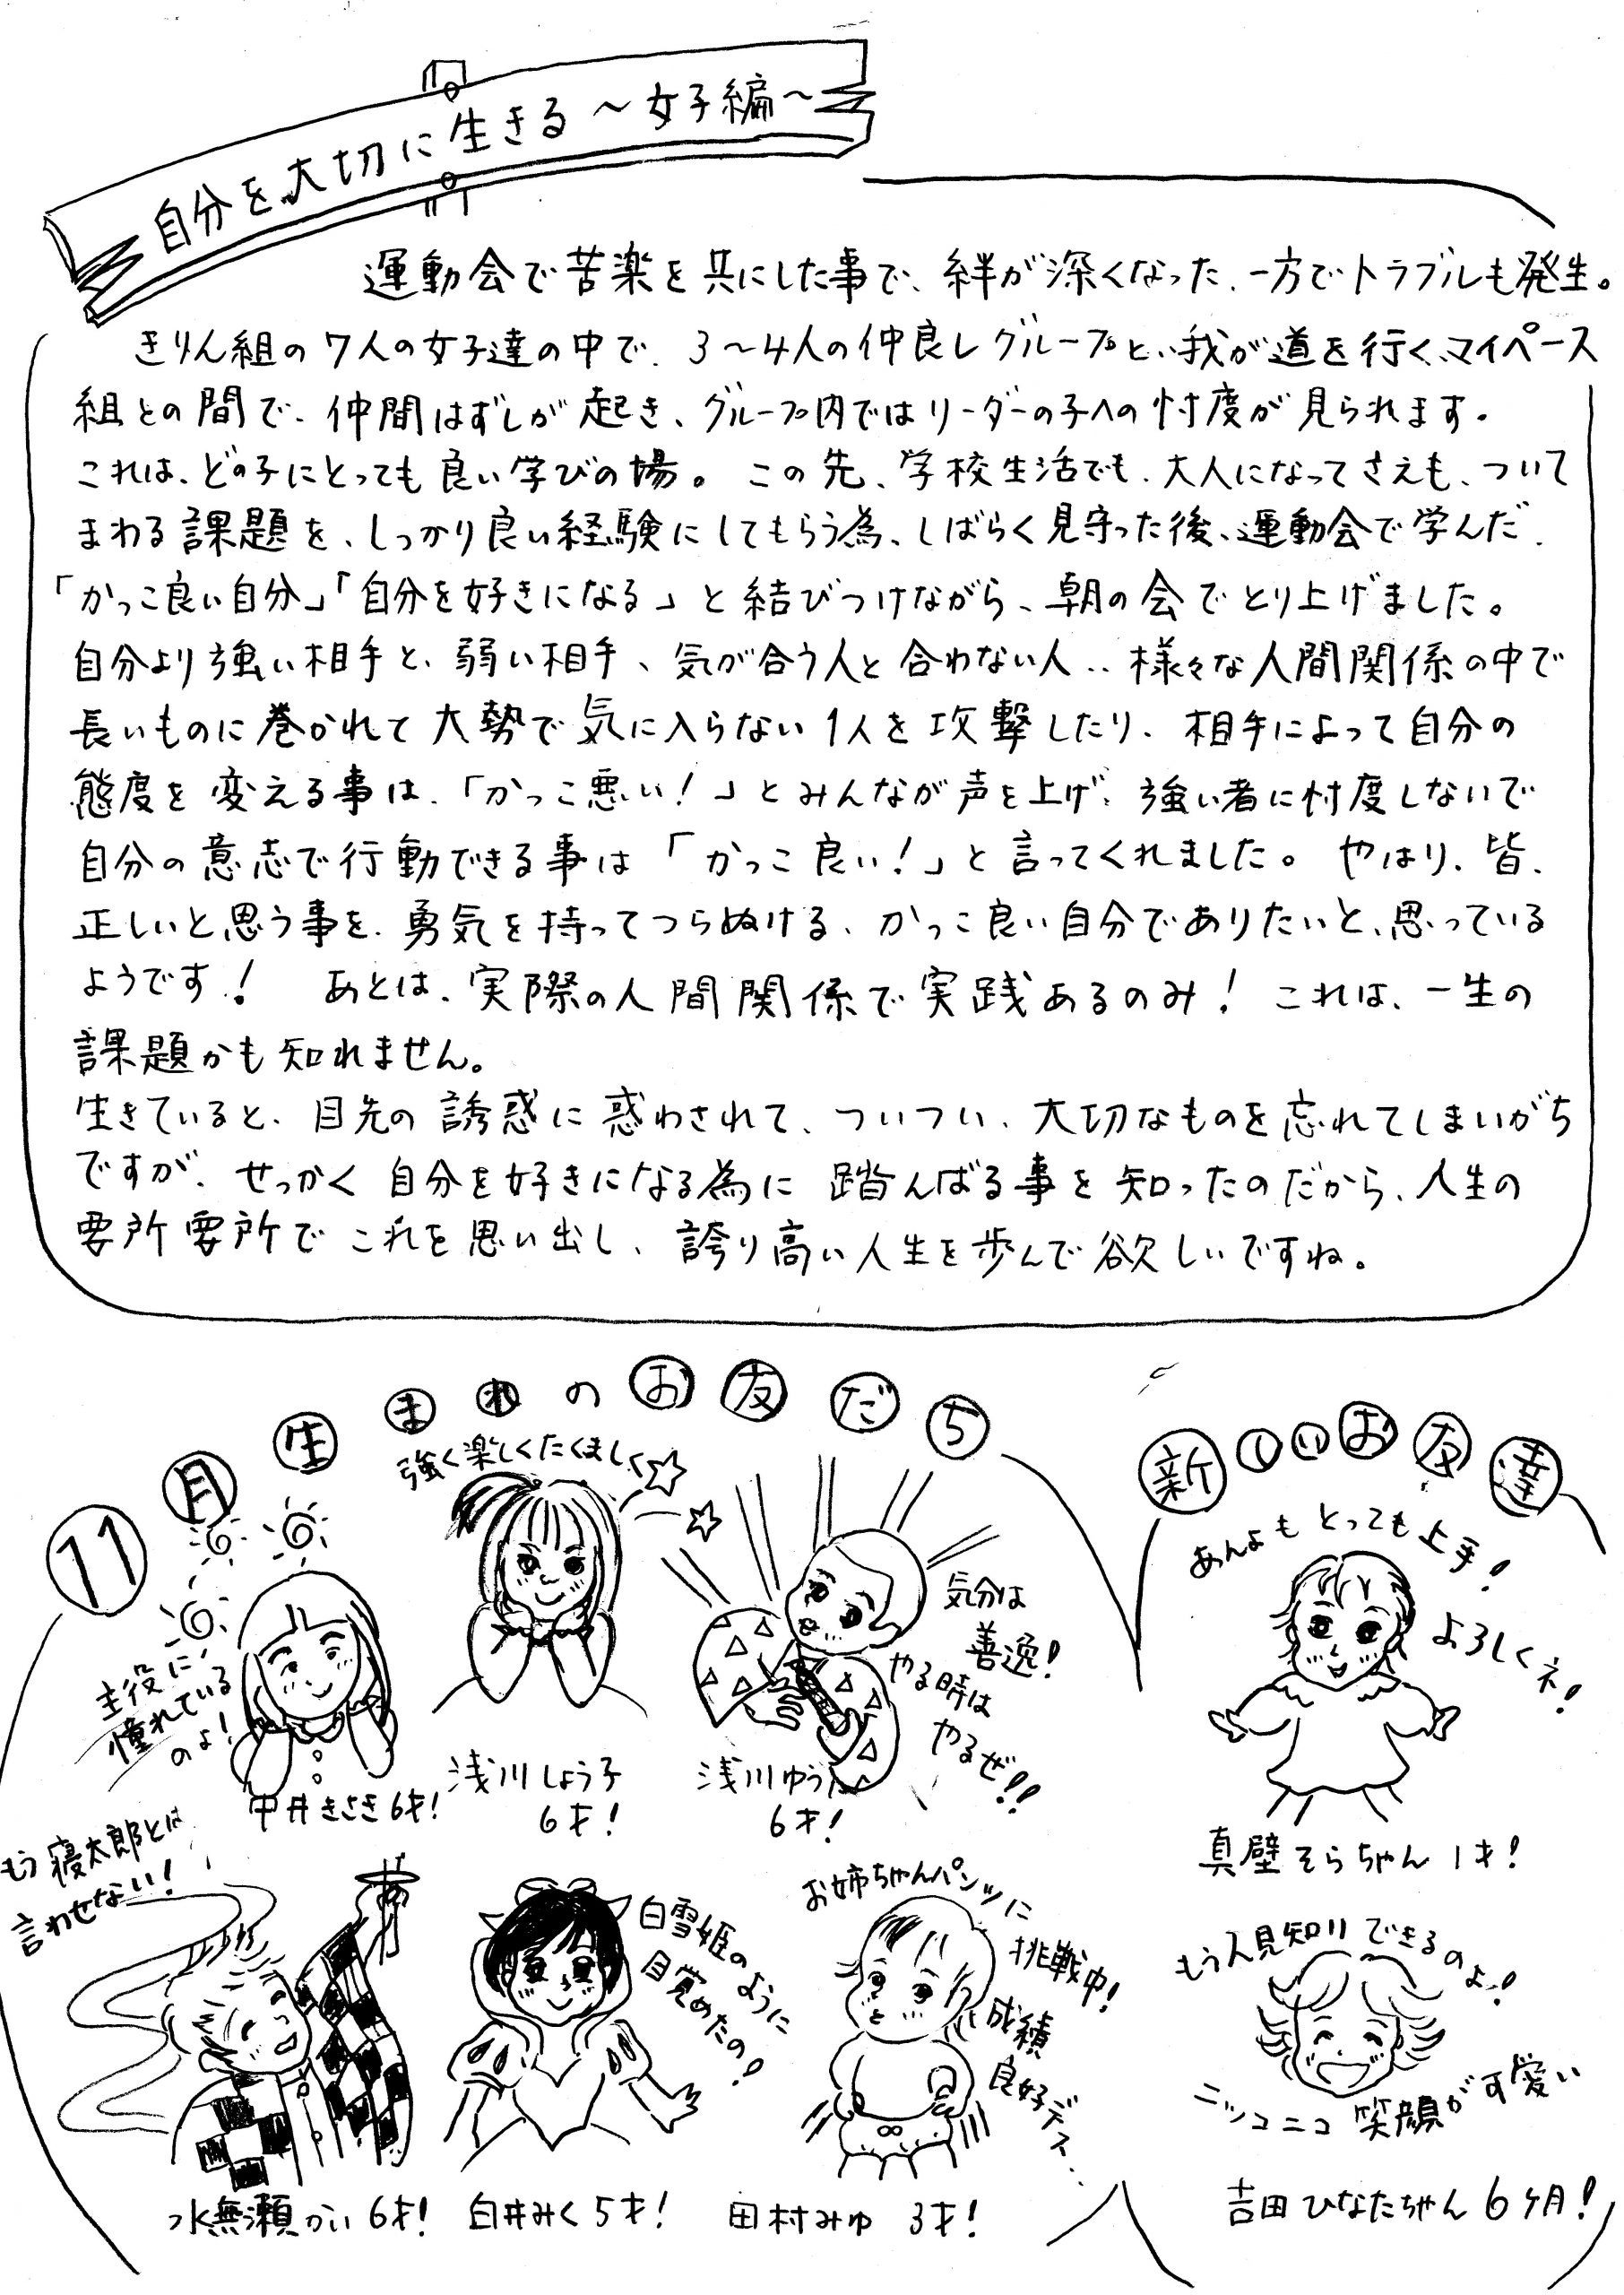 自分を大切に生きる～女子編～
運動会で苦楽を共にした事で、絆が深くなった、一方でトラブルも発生。
きりん組の7人の女子達の中で、3～4人の仲良しグループと、我が道を行く、マイペース
組との間で、仲間はずしが起き、グループ内ではリーダーの子への忖度が見られます。
これは、どの子にとっても良い学びの場。この先、学校生活でも、大人になってさえも、ついて
まわる課題を、しっかり良い経験にしてもらう為、しばらく見守った後、運動会で学んだ、
「かっこ良い自分」「自分を好きになる」と結びつけながら、朝の会でとり上げました。
自分より強い相手と、弱い相手、気が合う人と合わない人‥様々な人間関係の中で
長いものに巻かれて大勢で気に入らない1人を攻撃したり、相手によって自分の
態度を変える事は、「かっこ悪い!」とみんなが声を上げ、強い者に忖度しないで
自分の意志で行動できる事は「かっこ良い!」と言ってくれました。やはり、皆、
正しいと思う事を、勇気を持ってつらぬける、かっこ良い自分でありたいと、思っている
ようです!あとは、実際の人間関係で実践あるのみ!これは、一生の
課題かも知れません。
生きていると、目先の誘惑に惑わされて、ついつい、大切なものを忘れてしまいがち
ですが、せっかく自分を好きになる為に踏んばる事を知ったのだから、人生の
要所要所でこれを思い出し、誇り高い人生を歩んで欲しいですね。
11月生まれのお友だち
主役に
憧れている
のよ!
中井きさき6才!
強く楽しくたくましく☆
浅川しょう子
6才!
気分は
善逸!
やる時は
やるぜ!!
浅川ゆう
6才!
もう寝太郎とは
言わせない!
水無瀬かい6才!
白雪姫のように
目覚めたの!
白井みく5才!
お姉ちゃんパンツに
挑戦中!
成績
良好デス‥
田村みゆ 3才!
新しいお友達
あんよもとっても上手!
よろしくネ!
真壁そらちゃん1才!
もう人見知りできるのよ!
ニッコニコ笑顔が可愛い
吉田ひなたちゃん6ヶ月!